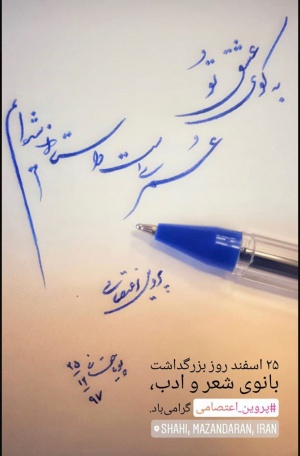 به کوی عشق تو
عمری است
پروین اعتصامی
۲۵/۱۲/۹۷
۲۵ اسفند روز بزرگداشت
بانوی شعر و ادب،
#پروین_اعتصامی گرامی‌باد.
SHAHI, MAZANDARAN, IRAN